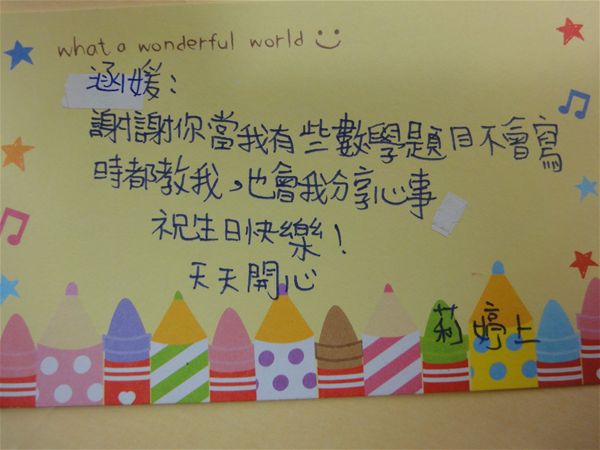 what a wonderful world
涵媛：
謝謝你當我有些數學題目不會寫
時都教我，也會我分享心事
祝生日快樂！
天天開心
莉婷上